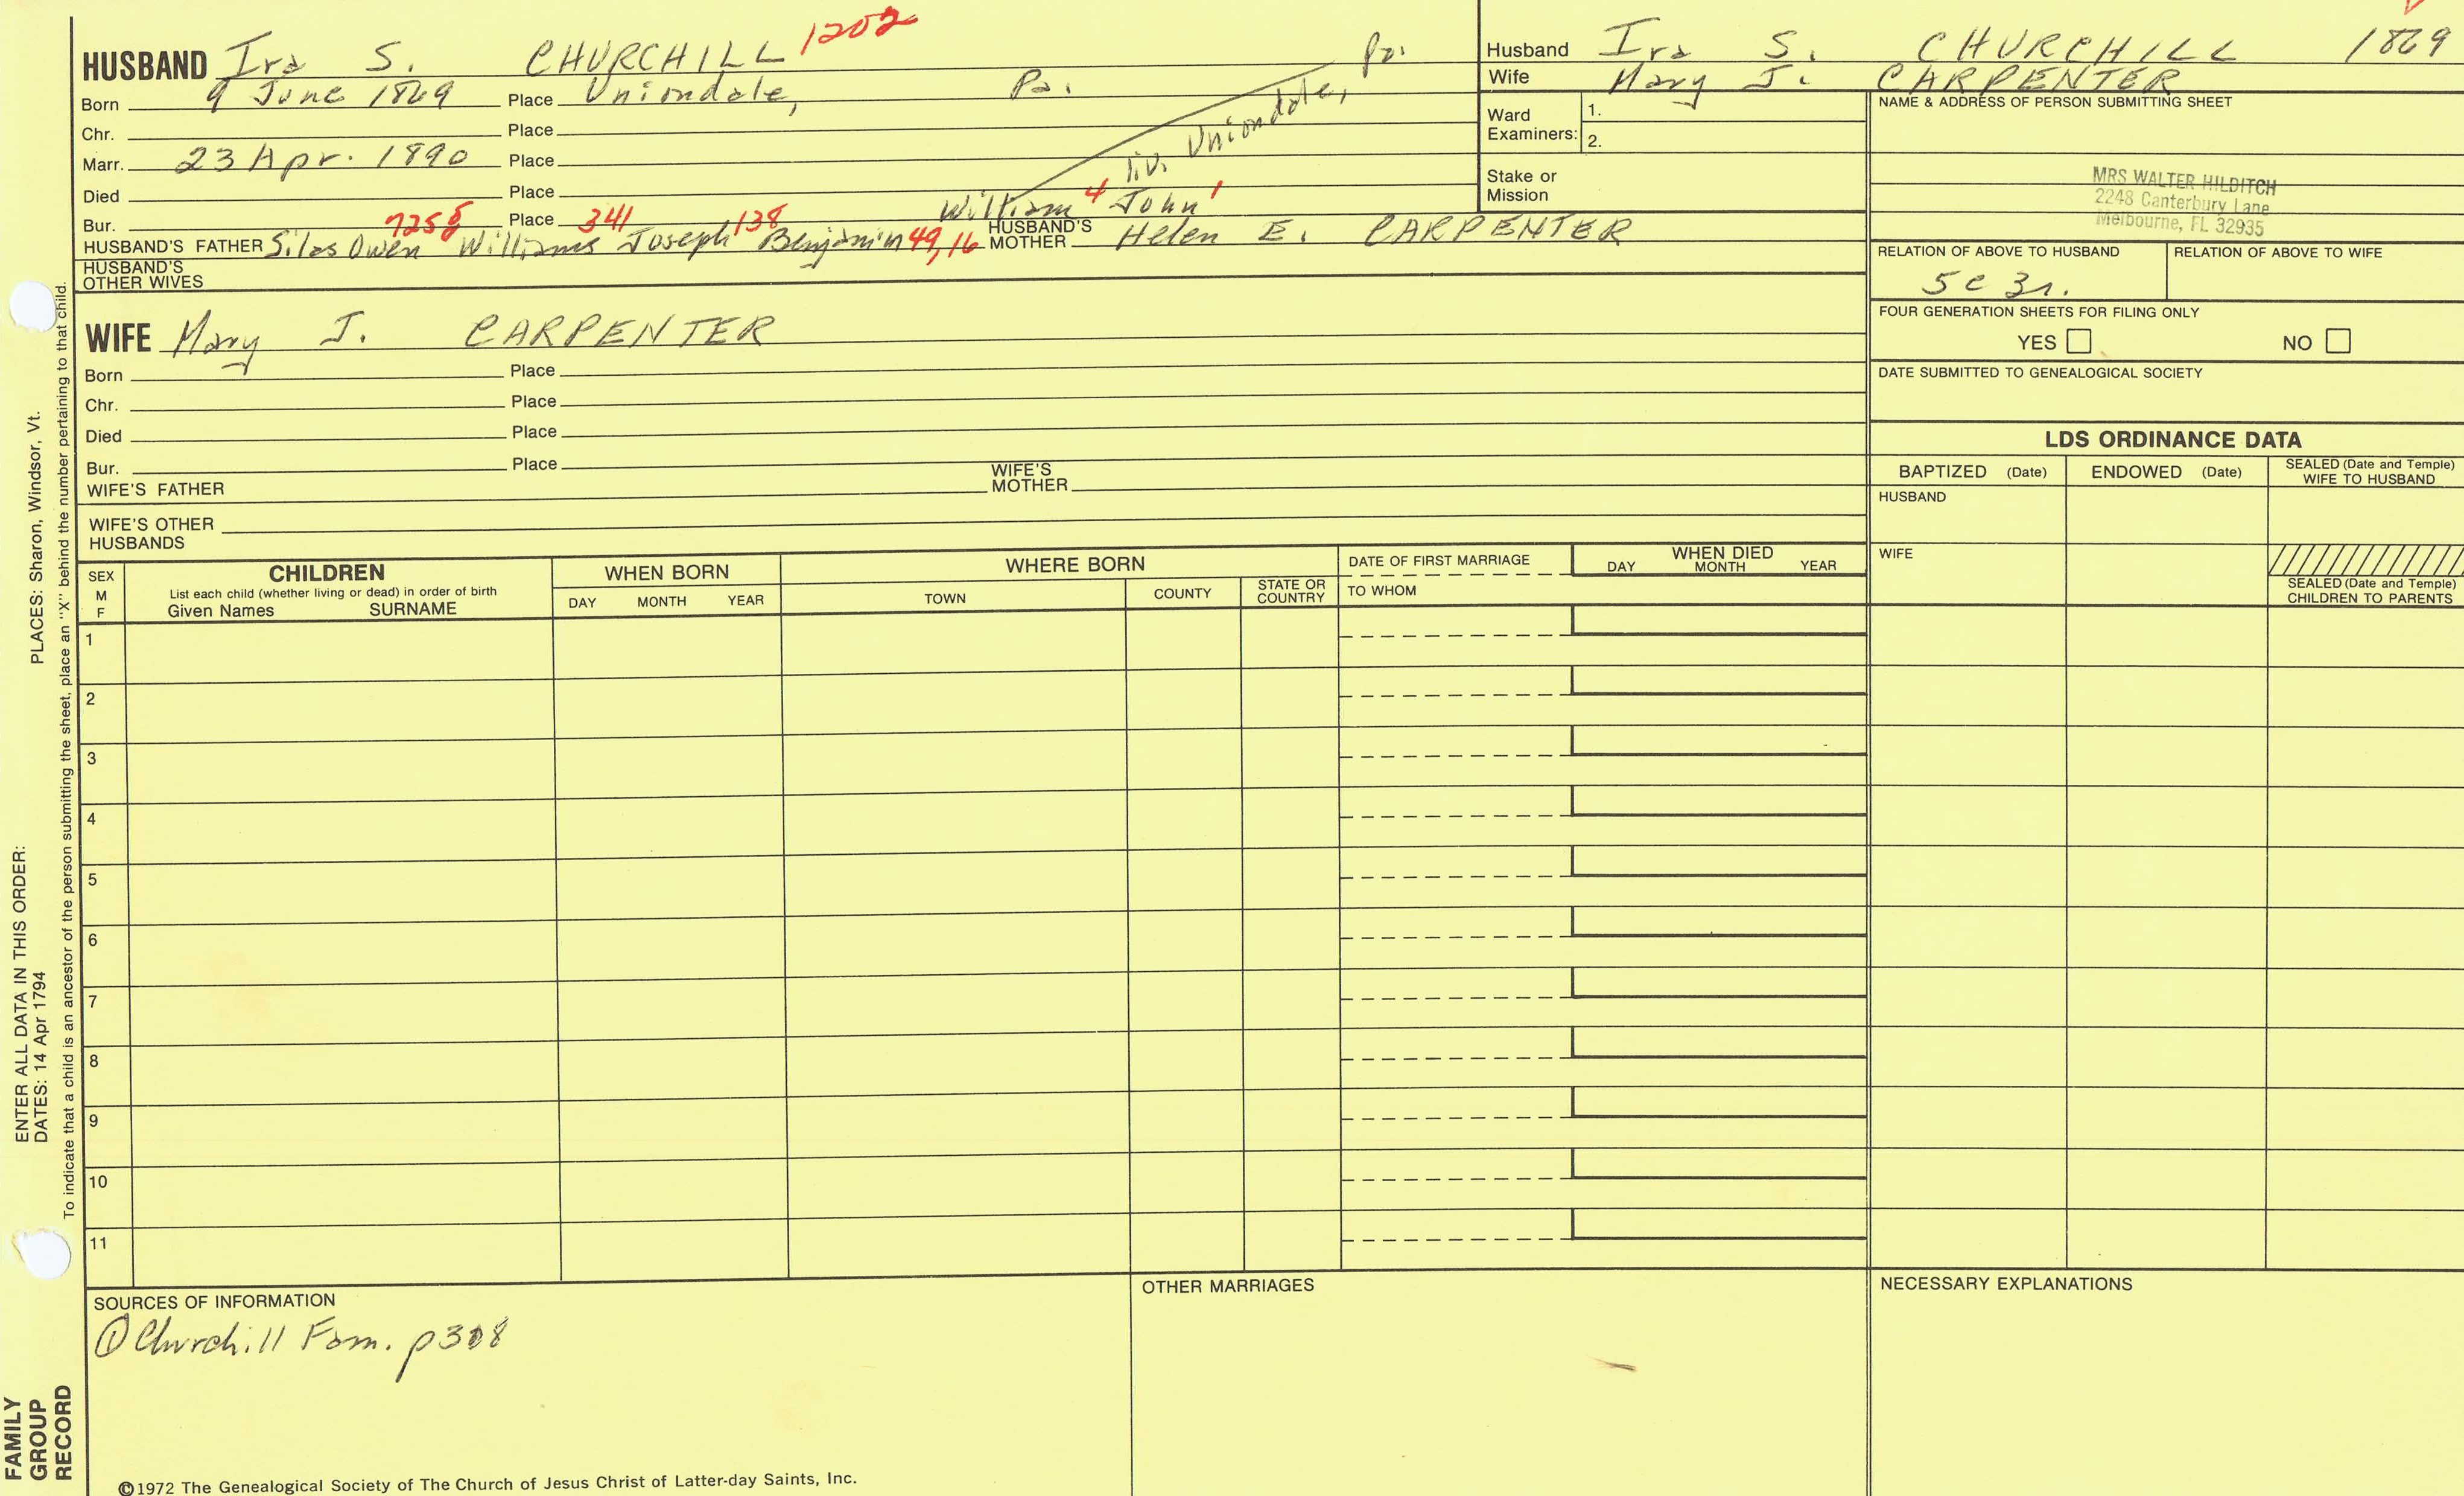 HUSBAND Ira S. CHURCHILL 1202
Born 9 June 1869 Place Uniondale, Pa.
Chr. Place
Marr. 23 Apr. 1890 Place
liv. Uniondale, Pa.
Died Place
William 4 John 1
Bur. Place
7258 341 138
HUSBAND'S FATHER Silas Owen Williams Joseph Benjamin 49, 16 HUSBAND'S MOTHER Helen E. CARPENTER
HUSBAND'S OTHER WIVES
WIFE Mary J. CARPENTER
Born Place
Chr. Place
Died Place
Bur. Place
WIFE'S FATHER WIFE'S MOTHER
WIFE'S OTHER HUSBANDS
Husband Ira S. CHURCHILL 1869
Wife Mary J. CARPENTER
Ward Examiners: 1.
2.
Stake or Mission
NAME & ADDRESS OF PERSON SUBMITTING SHEET
MRS WALTER HILDITCH
2248 Canterbury Lane
Melbourne, FL 32935
RELATION OF ABOVE TO HUSBAND RELATION OF ABOVE TO WIFE
5c 3r.
FOUR GENERATION SHEETS FOR FILING ONLY
YES NO
DATE SUBMITTED TO GENEALOGICAL SOCIETY
LDS ORDINANCE DATA
BAPTIZED (Date) ENDOWED (Date) SEALED (Date and Temple) WIFE TO HUSBAND
HUSBAND
WIFE
SEALED (Date and Temple)
CHILDREN TO PARENTS
SEX
M
F
CHILDREN
List each child (whether living or dead) in order of birth
Given Names SURNAME
WHEN BORN
DAY MONTH YEAR
WHERE BORN
TOWN COUNTY STATE OR COUNTRY
DATE OF FIRST MARRIAGE
TO WHOM
WHEN DIED
DAY MONTH YEAR
1
2
3
4
5
6
7
8
9
10
11
SOURCES OF INFORMATION
① Churchill Fam. p308
OTHER MARRIAGES
NECESSARY EXPLANATIONS
©1972 The Genealogical Society of The Church of Jesus Christ of Latter-day Saints, Inc.
FAMILY
GROUP
RECORD
ENTER ALL DATA IN THIS ORDER:
DATES: 14 Apr 1794
PLACES: Sharon, Windsor, Vt.
To indicate that a child is an ancestor of the person submitting the sheet, place an "X" behind the number pertaining to that child.